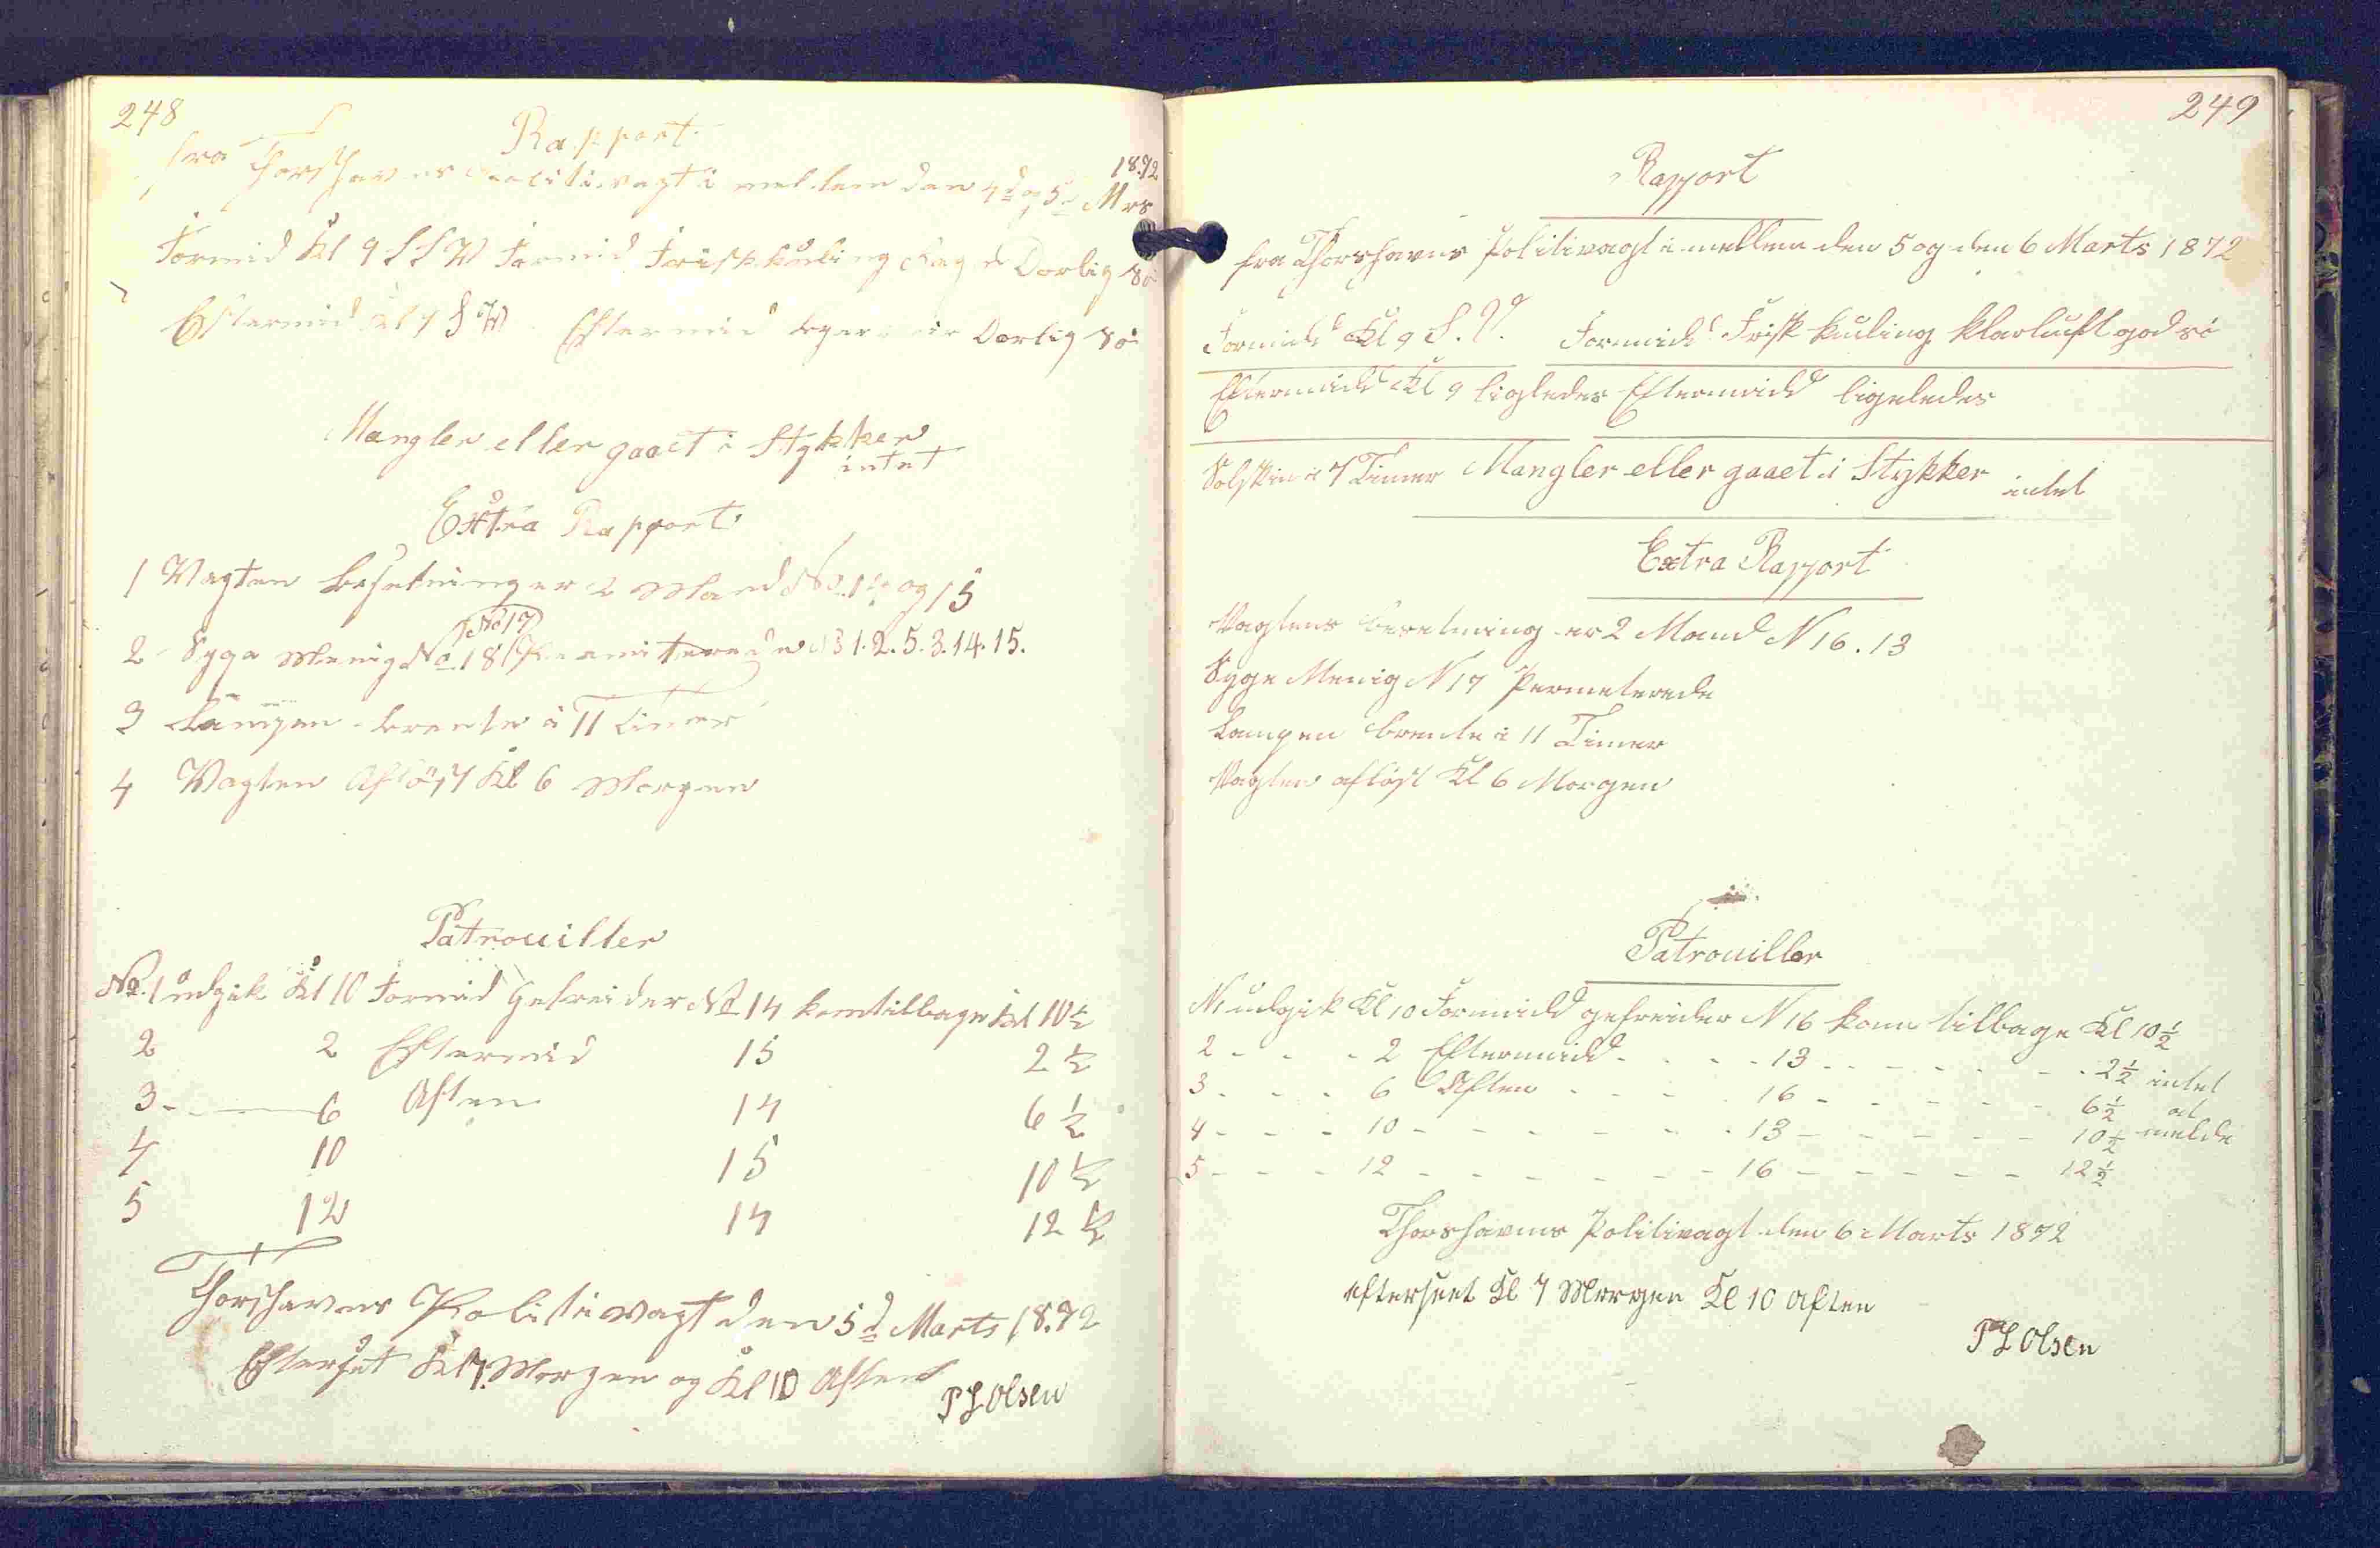 248
Rapport
fra Thorshavns Politivagt i mellem den 4d og 5d Mrs 1872
Formid Kl 9 SSW Formid Frisk kuling Dorlig sö
Eftermid Kl 9 SW Eftermid Dorlig sö
Mangler eller gaaet i Stykker
intet
Extra Rapport
1 Vagten besetning er 2 Mand No 14 og 15
2 Syge Menig No 18 No 17 Permiterede 1.2.5.3.14.15.
3 Lampen brente i 11 Timer
4 Vagten Aflöst Kl 6 Morgen
Patrouiller
No. 1 udgik Kl 10 Formid Gefreider No 14 kom tilbage Kl 10½
2 2 Eftermid 15 2½
3 - 6 Aften 14 6½
4 10 15 10½
5 12 14 12½
Thorshavns Politivagt den 5d Marts 1872
Efterset Kl 7 Morgen og Kl 10 Aften
P L Olsen
249
Rapport
fra Thorshavns Politivagt imellem den 5 og den 6 Marts 1872
Formidd Kl 9 S.V. Formidd Frisk kuling klarluft god sö
Eftermidd Kl 9 ligledes Eftermidd ligeledes
Solskin i 7 Timer Mangler eller gaaet i Stykker intet
Extra Rapport
Vagtens besetning er 2 Mand N 16. 13
Syge Menig N 17 Permeterede
Lampen brente i 11 Timer
Vagten aflöst Kl 6 Morgen
Patrouiller
N 1 udgik Kl 10 Formidd gefreider N 16 kom tilbage Kl 10½
2 - - - 2 Eftermidd - - - - 13 - - - - - - 2½ intet
3 - - - 6 Aften - - - - 16 - - - - - 6½ at
4 - - - 10 - - - - - - - 13 - - - - - 10½ melde
5 - - - 12 - - - - - - - 16 - - - - - 12½
Thorshavns Politivagt den 6 Marts 1872
efterseet Kl 7 Morgen Kl 10 Aften
P L Olsen